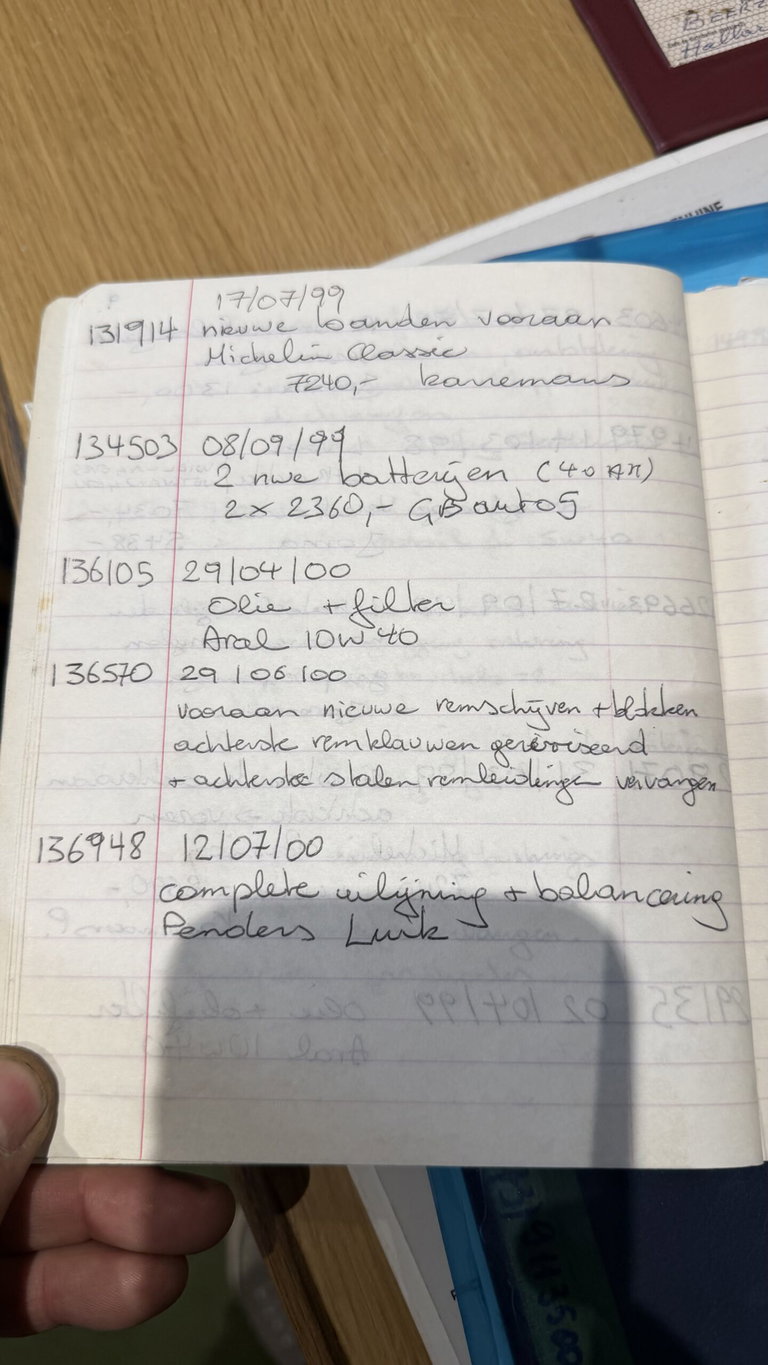 17/07/99
131914 nieuwe banden vooraan
Michelin Classic
7240,- karremans
134503 08/09/99
2 nwe batterijen (40 AH)
2x 2360,- GB auto5
136105 29/04/00
Olie + filter
Aral 10W40
136570 29/06/00
vooraan nieuwe remschijven + blokken
achterste remklauwen gereviseerd
+ achterste stalen remleidingen vervangen
136948 12/07/00
complete uitlijning + balancering
Penders Luik